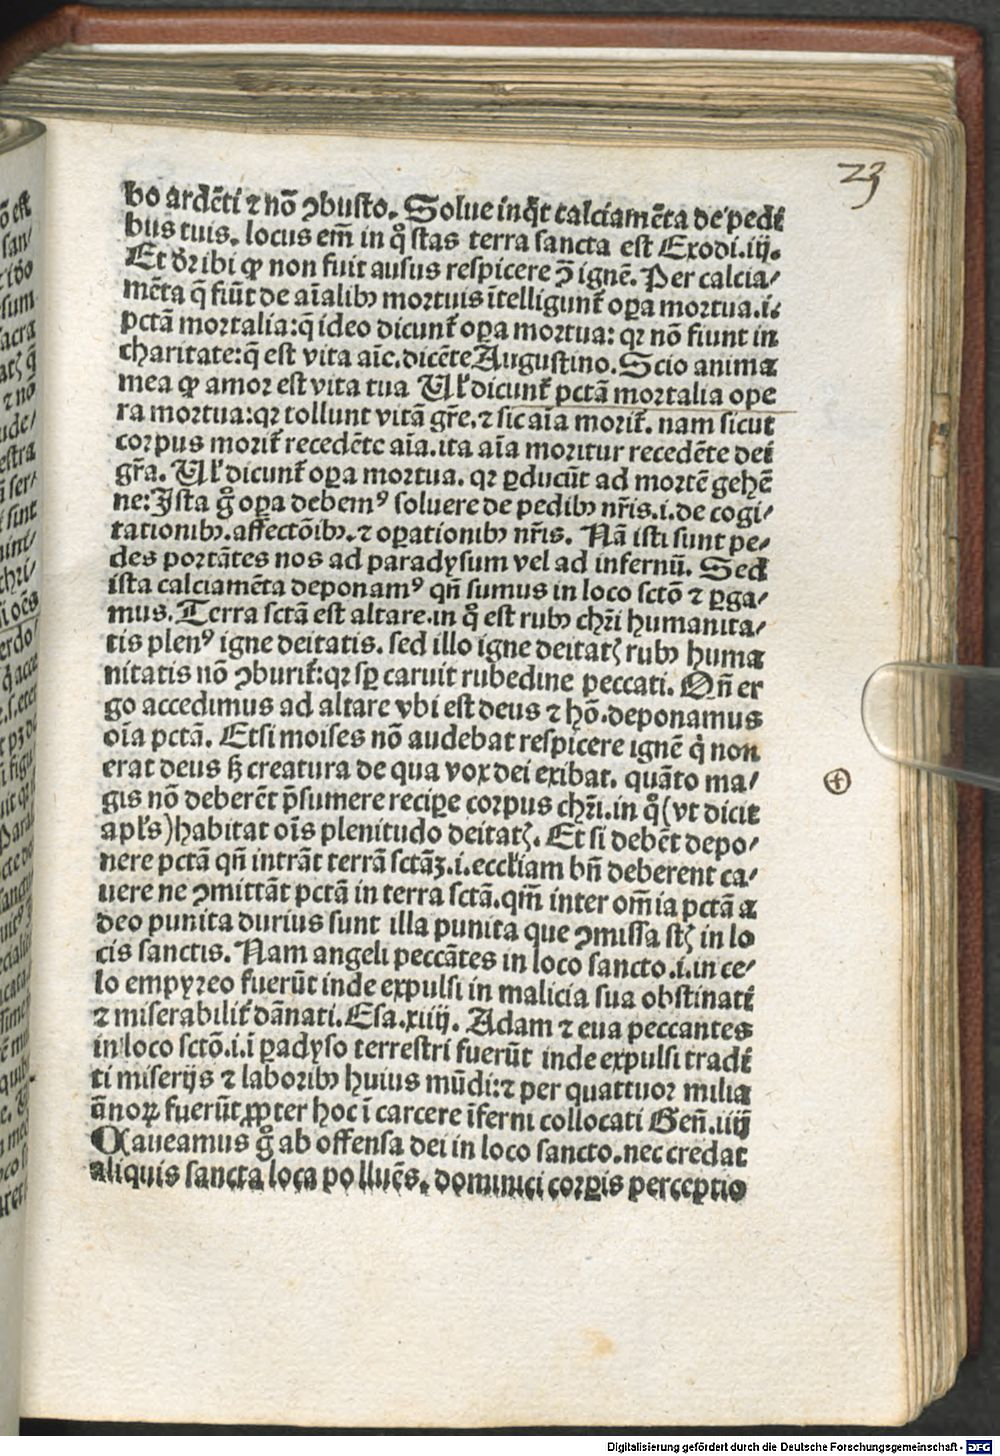 23
bo ardēti ⁊ nō ꝯbusto. Solue inq̇t calciamēta de pedi
bus tuis. locus em̄ in q̊ stas terra sancta est Exodi.iij.
Et dr̄ ibi ꝙ non fuit ausus respicere ꝯ̄ ignē. Per calcia⸗
mēta q̄ fiūt de aīalibꝫ mortuis ītelligunt᷑ oꝑa mortua.i.
pctā mortalia:q̄ ideo dicunt᷑ oꝑa mortua: qꝛ nō fiunt in
charitate:q̄ est vita aīe.dicēte Augustino.Scio anima
mea ꝙ amor est vita tua Ul̛ dicunt᷑ pctā mortalia ope
ra mortua:qꝛ tollunt vitā gr̄e.⁊ sic aīa morit᷑. nam sicut
corpus morit᷑ recedēte aīa.ita aīa moritur recedēte dei
gr̄a. Ul̛ dicunt᷑ oꝑa mortua. qꝛ ꝑducūt ad mortē gehē
ne: Ista g̊ oꝑa debemꝰ soluere de pedibꝫ nr̄is.i.de cogi⸗
tationibꝫ.affectōibꝫ.⁊ oꝑationibꝫ nr̄is. Nā isti sunt pe⸗
des portātes nos ad paradysum vel ad infernū. Sed
ista calciamēta deponamꝰ qn̄ sumus in loco sctō ⁊ ꝑga⸗
mus. Terra sctā est altare.in q̊ est rubꝫ chr̄i humanita⸗
tis plenꝰ igne deitatis. sed illo igne deitatꝭ rubꝫ huma
nitatis nō ꝯburit᷑:qꝛ sꝑ caruit rubedine peccati. Qn̄ er
go accedimus ad altare vbi est deus ⁊ hō.deponamus
oīa pctā. Etsi moises nō audebat respicere ignē q̇ non
erat deus sꝫ creatura de qua vox dei exibat. quāto ma⸗
gis nō deberēt p̄sumere recipe corpus chr̄i.in q̊ (vt dicit
apl̛s) habitat oīs plenitudo deitatꝭ. Et si debēt depo⸗
nere pctā qn̄ intrāt terrā sctāꝫ.i.eccl̛iam bn̄ deberent ca⸗
uere ne ꝯmittāt pctā in terra sctā.qm̄ inter om̄ia pctā a
deo punita durius sunt illa punita que ꝯmissa sꝭ in lo
cis sanctis. Nam angeli peccātes in loco sancto.i.in ce⸗
lo empyreo fuerūt inde expulsi in malicia sua obstinati
⁊ miserabilit᷑ dānati.Esa.xiiij. Adam ⁊ eua peccantes
in loco sctō.i.ī ꝑadyso terrestri fuerūt inde expulsi tradi
ti miserijs ⁊ laboribꝫ huius mūdi:⁊ per quattuor milia
ānoꝝ fuerūt ꝓpter hoc ī carcere īferni collocati Gen̄.iiij
Caueamus g̊ ab offensa dei in loco sancto.nec credat
aliquis sancta loca polluēs. dominici corꝑis perceptio
Digitalisierung gefördert durch die Deutsche Forschungsgemeinschaft - DFG